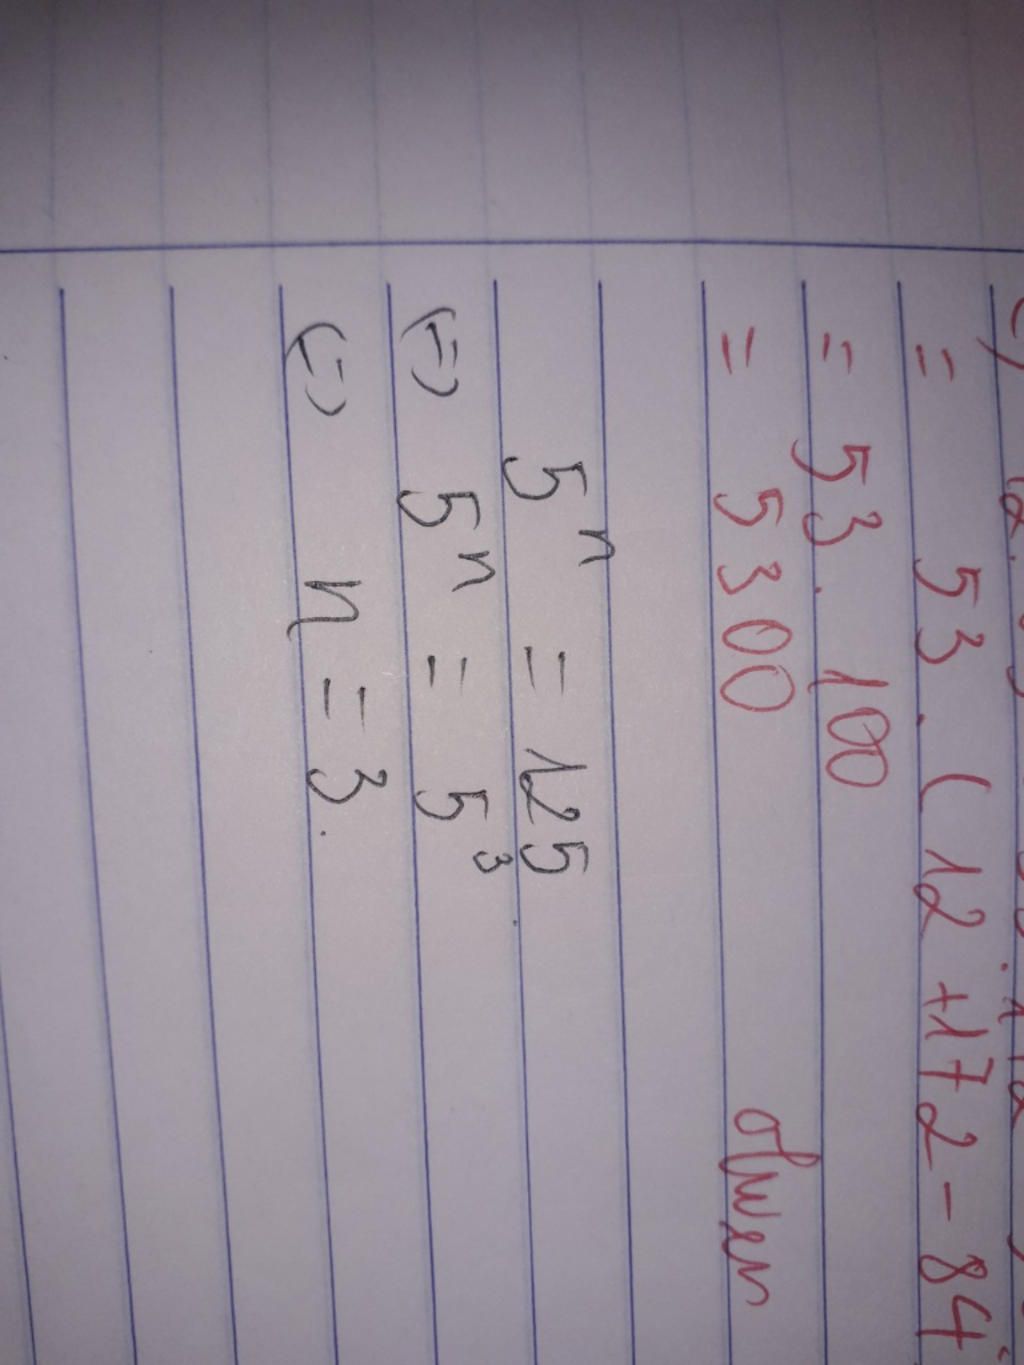 = 53. (12 +172 - 84
= 53. 100
= 5300
5ⁿ = 125
(=) 5ⁿ = 5³
(=) n = 3.